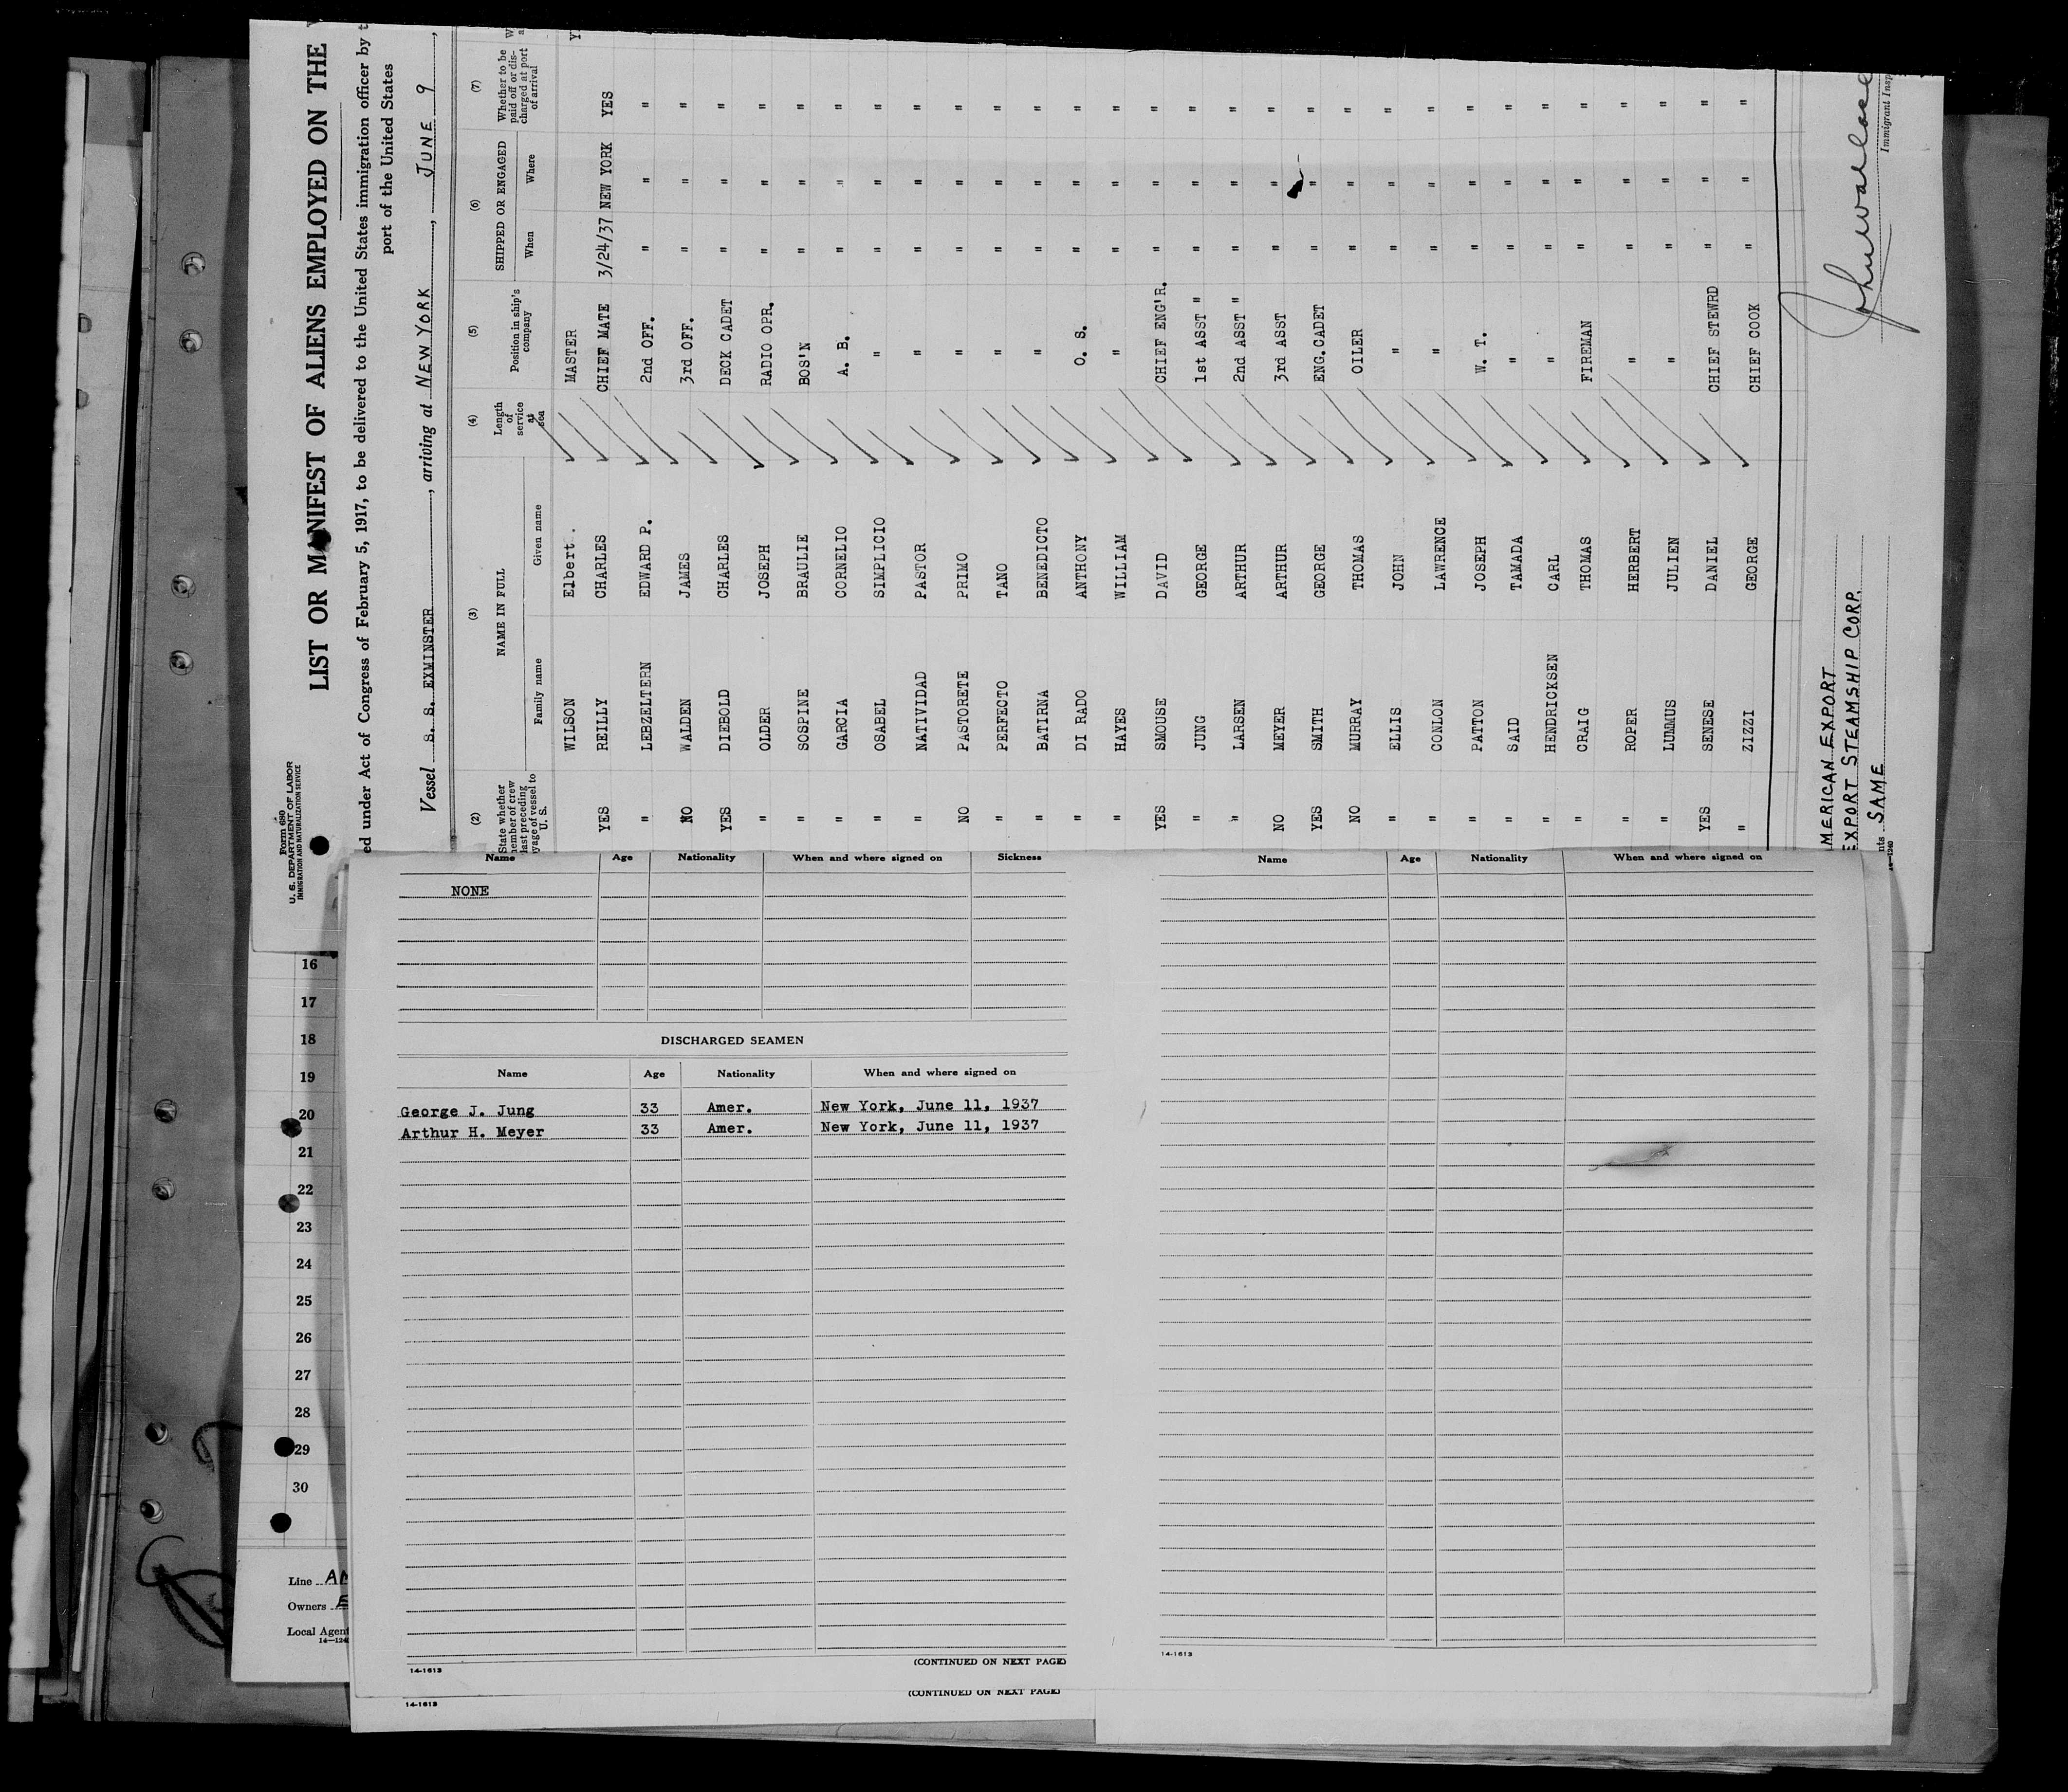 Form 680
U. S. DEPARTMENT OF LABOR
IMMIGRATION AND NATURALIZATION SERVICE
LIST OR MANIFEST OF ALIENS EMPLOYED ON THE
ed under Act of Congress of February 5, 1917, to be delivered to the United States immigration officer by
port of the United States
Vessel S. S. EXMINSTER, arriving at NEW YORK, JUNE 9,
(2) (3) (4) (5) (6) (7)
State whether member of crew last preceding voyage of vessel to U. S.
NAME IN FULL
Family name Given name
Length of service at sea
Position in ship's company
SHIPPED OR ENGAGED
When Where
Whether to be paid off or discharged at port of arrival
WILSON Elbert. MASTER
YES REILLY CHARLES CHIEF MATE 3/24/37 NEW YORK YES
" LEBZELTERN EDWARD P. 2nd OFF. " " "
NO WALDEN JAMES 3rd OFF. " " "
YES DIEBOLD CHARLES DECK CADET " " "
" OLDER JOSEPH RADIO OPR. " " "
" SOSPINE BRAULIE BOS'N " " "
" GARCIA CORNELIO A. B. " " "
" OSABEL SIMPLICIO " " " "
" NATIVIDAD PASTOR " " " "
NO PASTORETE PRIMO " " " "
" PERFECTO TANO " " " "
" BATIRNA BENEDICTO " " " "
" DI RADO ANTHONY O. S. " " "
" HAYES WILLIAM " " " "
YES SMOUSE DAVID CHIEF ENG'R. " " "
" JUNG GEORGE 1st ASST " " " "
" LARSEN ARTHUR 2nd ASST " " " "
NO MEYER ARTHUR 3rd ASST " " "
YES SMITH GEORGE ENG.CADET " " "
NO MURRAY THOMAS OILER " " "
" ELLIS JOHN " " " "
" CONLON LAWRENCE " " " "
" PATTON JOSEPH W. T. " " "
" SAID TAMADA " " " "
" HENDRICKSEN CARL " " " "
" CRAIG THOMAS FIREMAN " " "
" ROPER HERBERT " " " "
" LUMMUS JULIEN " " " "
YES SENESE DANIEL CHIEF STEWRD " " "
" ZIZZI GEORGE CHIEF COOK " " "
MERICAN EXPORT
EXPORT STEAMSHIP CORP.
nts SAME
14-1240
John Wallace
Immigrant Insp
Name Age Nationality When and where signed on Sickness
NONE
DISCHARGED SEAMEN
Name Age Nationality When and where signed on
George J. Jung 33 Amer. New York, June 11, 1937
Arthur H. Meyer 33 Amer. New York, June 11, 1937
14-1613 (CONTINUED ON NEXT PAGE)
14-1613 (CONTINUED ON NEXT PAGE)
Name Age Nationality When and where signed on
14-1613
16
17
18
19
20
21
22
23
24
25
26
27
28
29
30
Line AM
Owners E
Local Agent
14-124